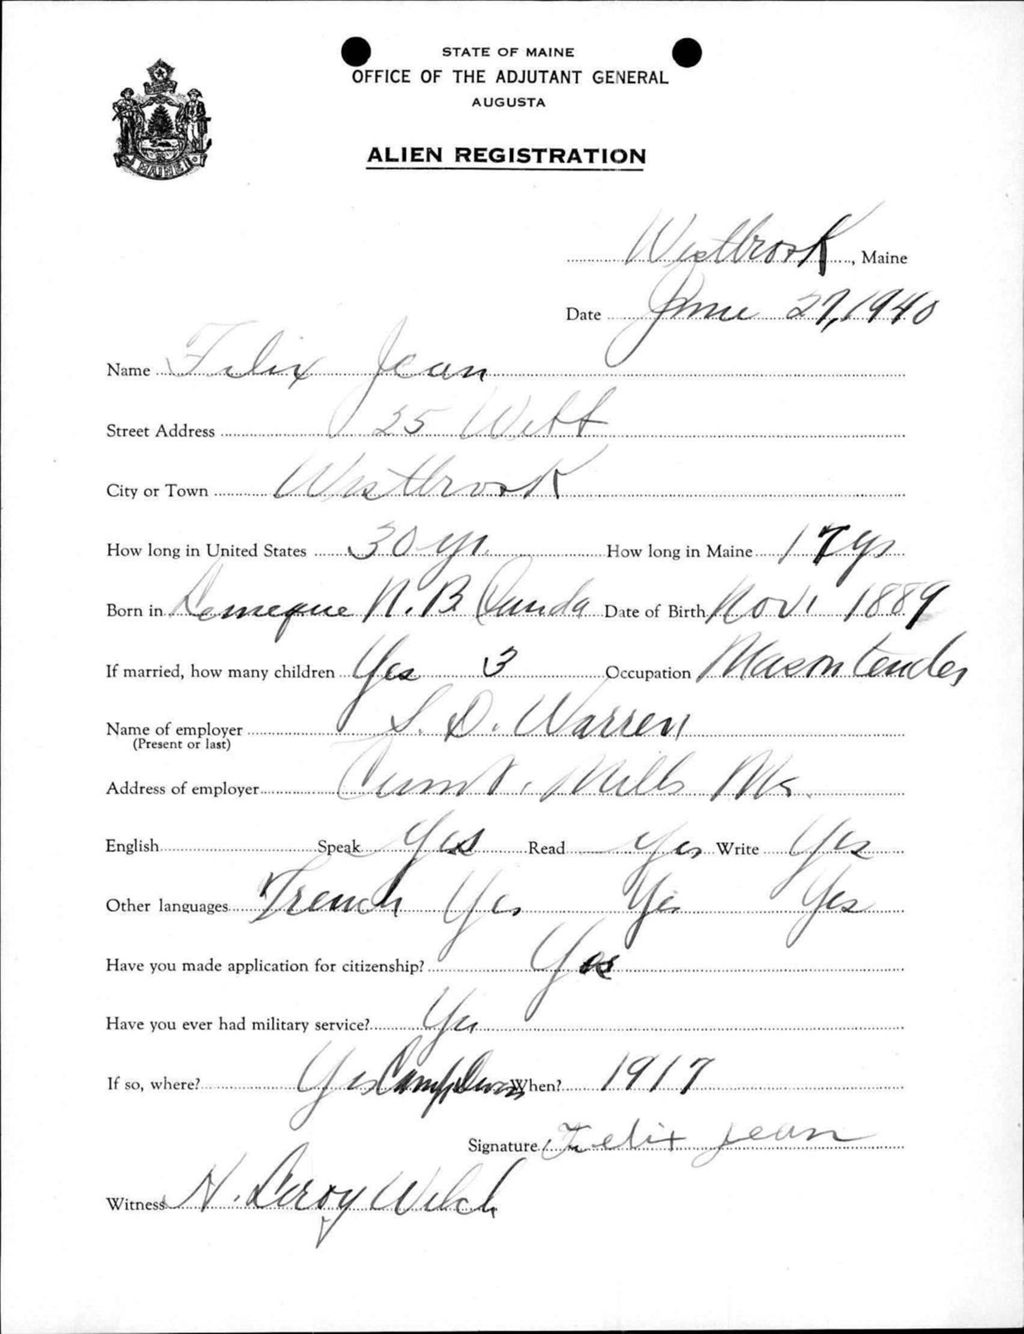 STATE OF MAINE
OFFICE OF THE ADJUTANT GENERAL
AUGUSTA
ALIEN REGISTRATION
Westbrook, Maine
Date June 27, 1940
Name Felix Jean
Street Address 25 Webb
City or Town Westbrook
How long in United States 30 yr. How long in Maine 17 yrs
Born in Lemeque N.B. Canda Date of Birth Nov 1 1889
If married, how many children Yes 3 Occupation Mason tender
Name of employer S. D. Warren
(Present or last)
Address of employer Cumb. Mills Me.
English Speak Yes Read Yes Write Yes
Other languages French Yes Yes Yes
Have you made application for citizenship? Yes
Have you ever had military service? Yes
If so, where? Yes Camp Devens When? 1917
Signature Felix Jean
Witness H. Leroy Welch